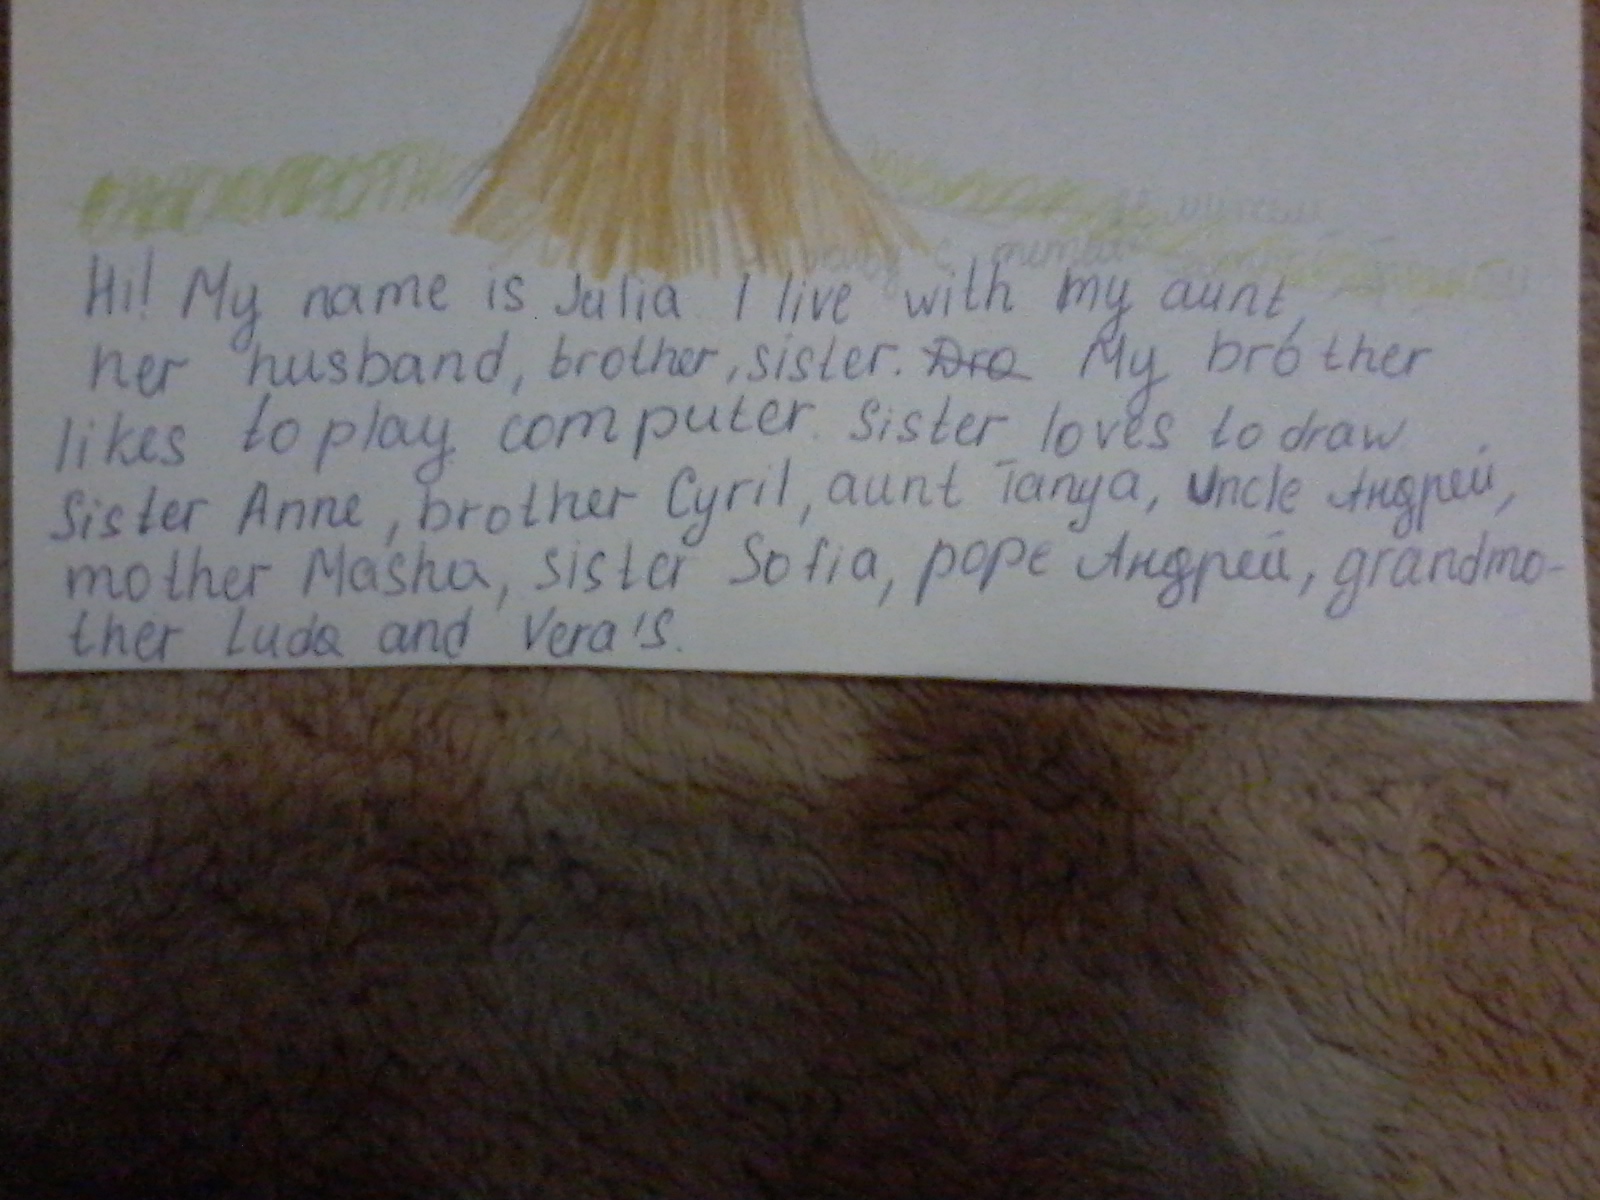 Hi! My name is Julia I live with my aunt,
her husband, brother, sister. My brother
likes to play computer. Sister loves to draw
Sister Anne, brother Cyril, aunt Tanya, Uncle Андрей,
mother Masha, sister Sofia, pope Андрей, grandmo-
ther Luda and Vera's.